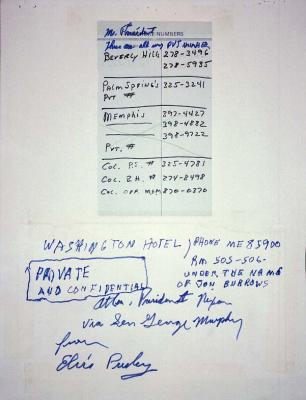 Mr. President
NUMBERS
These are all my PVT numbers
BEVERLY HILLS 278-3496
278-5935
PALM SPRING'S 325-3241
PVT #
MEMPHIS 397-4427
398-4882
398-9722
PVT. #
COL. P.S. # 325-4781
COL. B.H. # 274-8498
COL. OFF. MEM. 870-0370
WASHINGTON HOTEL, PHONE ME 85900
RM 505-506-
UNDER THE NAME
OF JON BURROWS
PRIVATE
AND CONFIDENTIAL
Attn. President Nixon
via Sen George Murphy
from
Elvis Presley